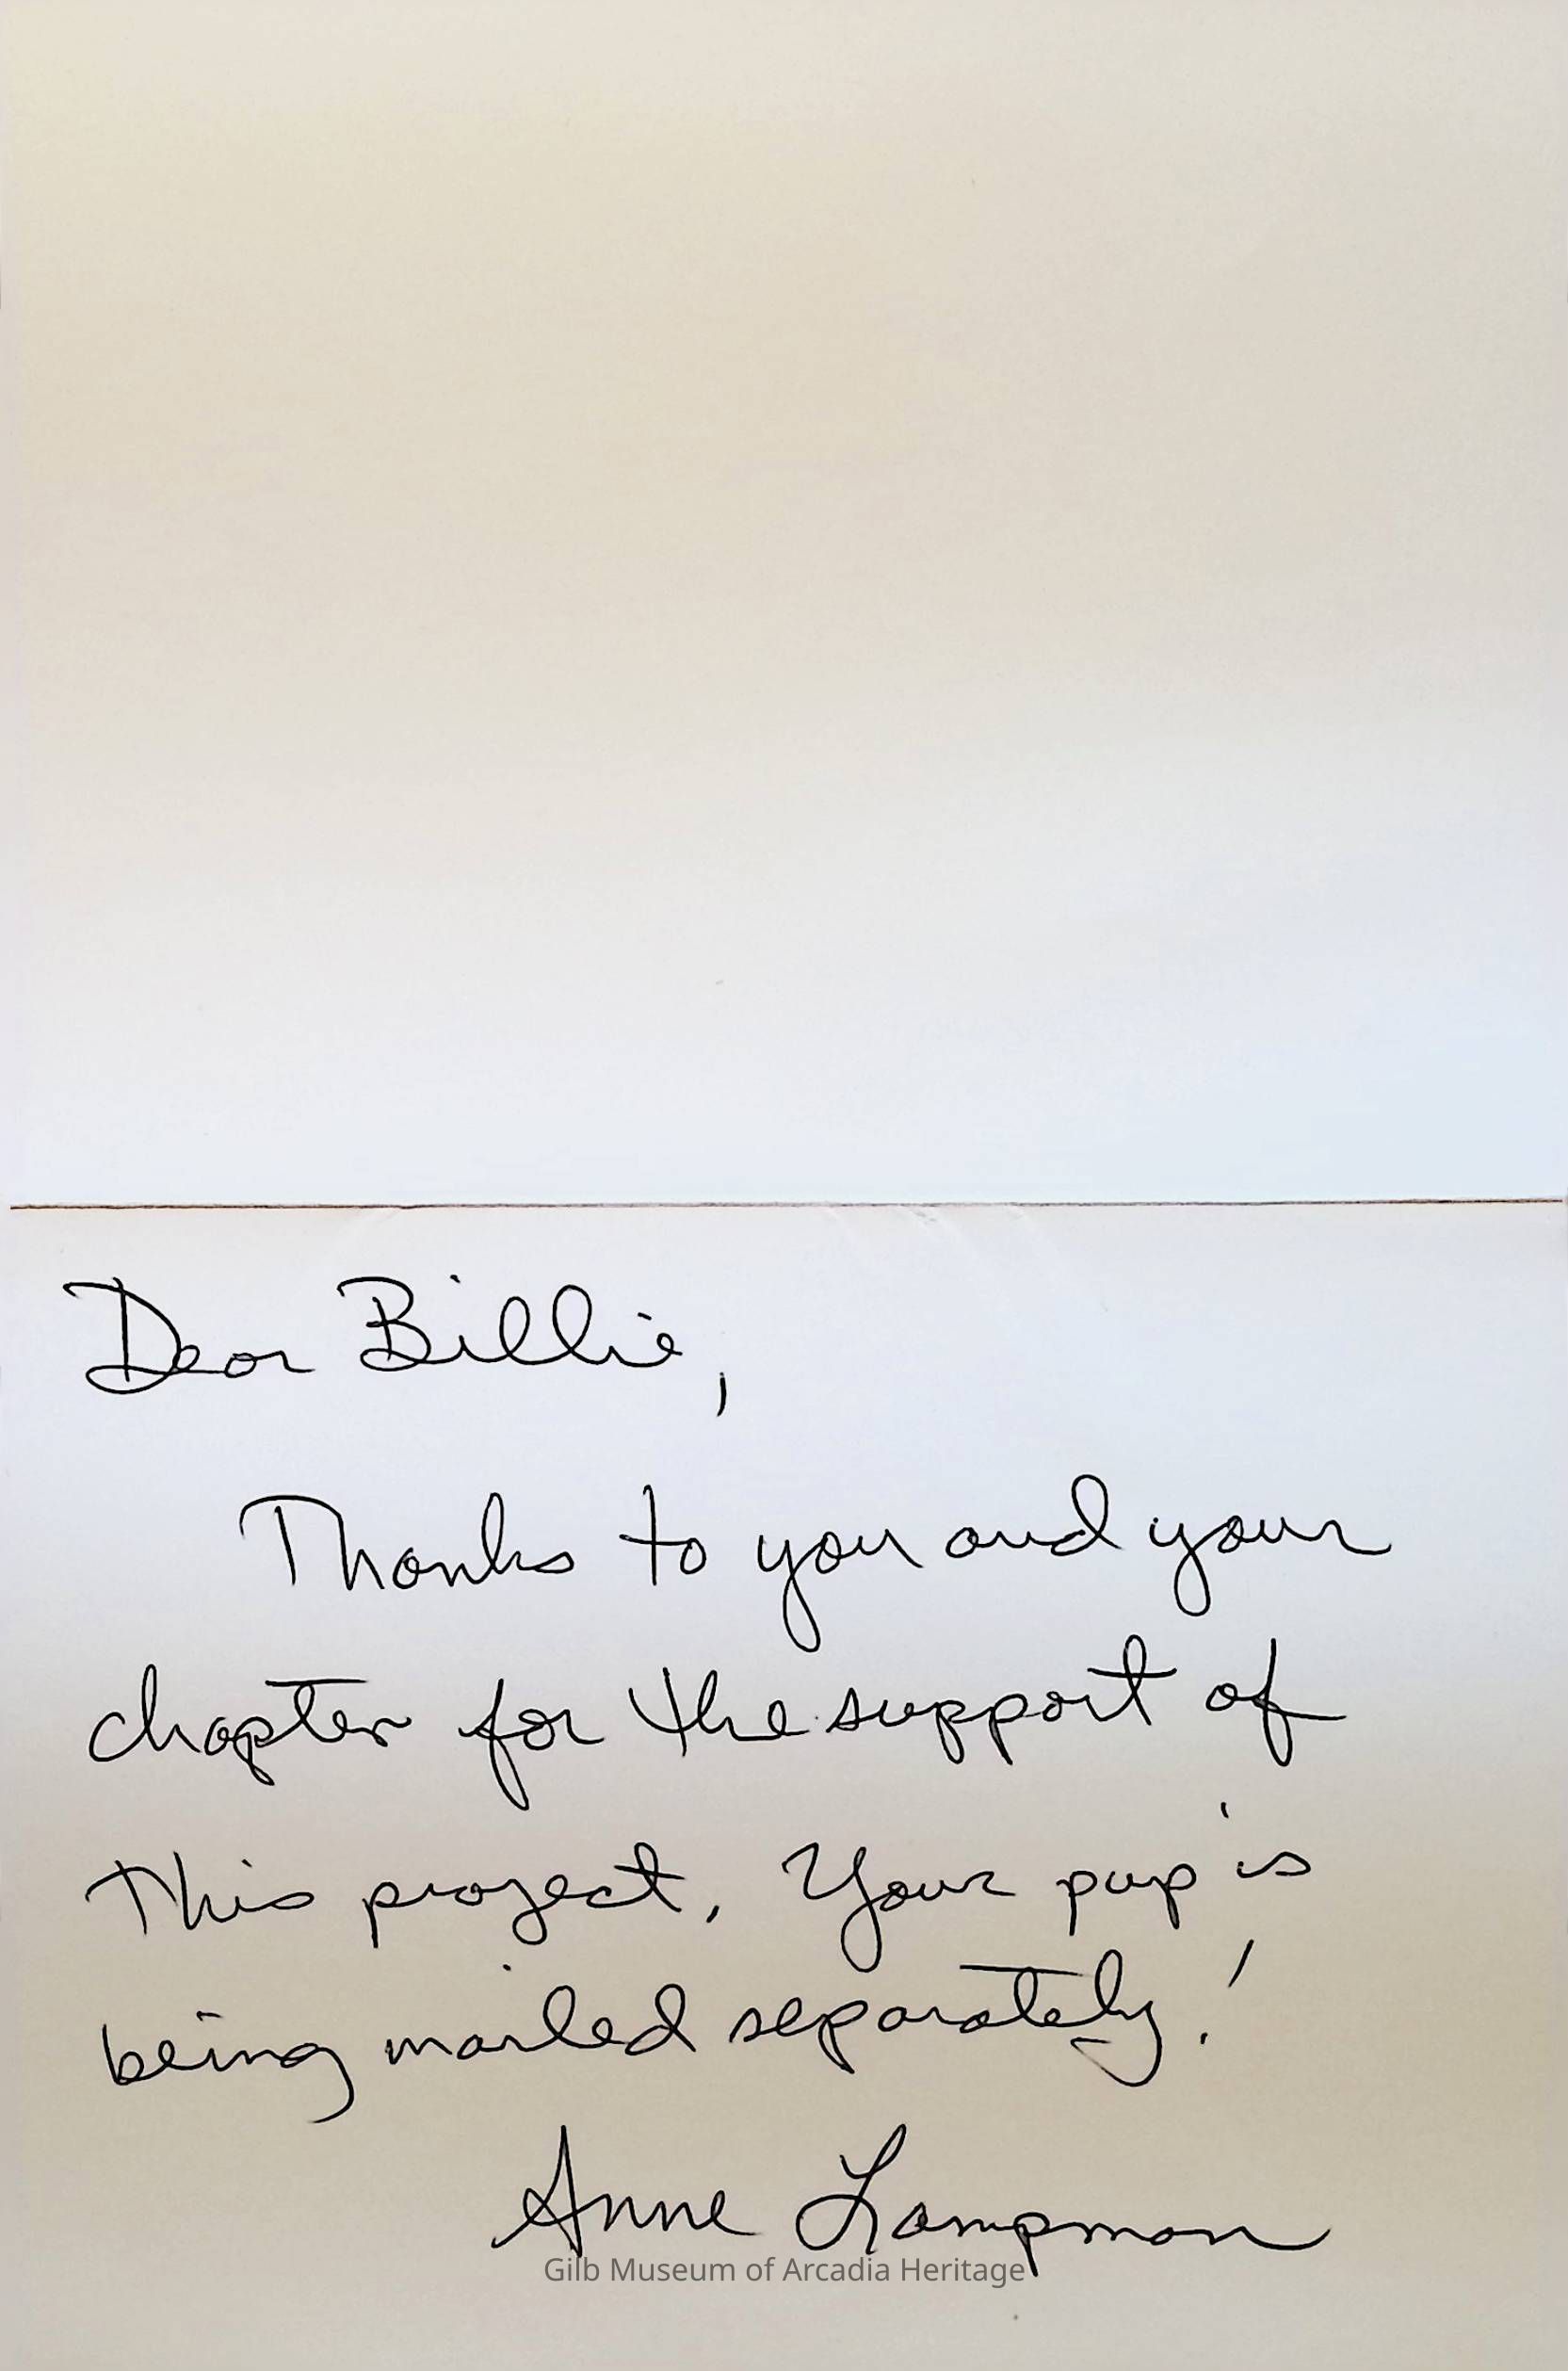 Dear Billie,
Thanks to you and your
chapter for the support of
this project. Your pup is
being mailed separately!
Anne Lampman
Gilb Museum of Arcadia Heritage